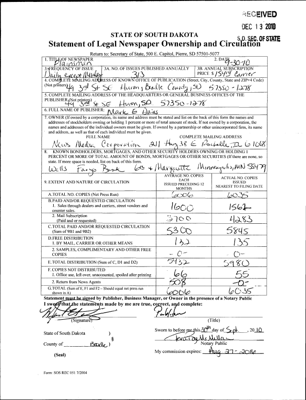 RECEIVED
DEC 13 2010
S.D. SEC. OF STATE
STATE OF SOUTH DAKOTA
Statement of Legal Newspaper Ownership and Circulation
Return to: Secretary of State, 500 E. Capitol, Pierre, SD 57501-5077
1. TITLE OF NEWSPAPER
Plainsman
2. DATE
9-30-10
3. FREQUENCY OF ISSUE
3A. NO. OF ISSUES PUBLISHED ANNUALLY
3B. ANNUAL SUBSCRIPTION PRICE
4. COMPLETE MAILING ADDRESS OF KNOWN OFFICE OF PUBLICATION (Street, City, County, State and ZIP+4 Code) (Not printers)
49 3rd St SE Huron, Beadle County, SD 57350-1278
5. COMPLETE MAILING ADDRESS OF THE HEADQUARTERS OR GENERAL BUSINESS OFFICES OF THE PUBLISHER (Not printer)
49 3rd St SE Huron, SD 57350-1278
6. FULL NAME OF PUBLISHER:
Mark E.
7. OWNER (If owned by a corporation, its name and address must be stated and list on the back of this form the names and addresses of stockholders owning or holding 1 percent or more of total amount of stock. If not owned by a corporation, the names and addresses of the individual owners must be given. If owned by a partnership or other unincorporated firm, its name and address, as well as that of each individual must be given.
FULL NAME
COMPLETE MAILING ADDRESS
News Media Corporation 211 Hwy 38 E Rochelle, IL 61068
8. KNOWN BONDHOLDERS, MORTGAGEES, AND OTHER SECURITY HOLDERS OWNING OR HOLDING 1 PERCENT OR MORE OF TOTAL AMOUNT OF BONDS, MORTGAGES OR OTHER SECURITIES (If there are none, so state. If more space is needed, list on back of this form.
Wells Fargo Bank 6th & Marquette Minneapolis, MN 55479
9. EXTENT AND NATURE OF CIRCULATION
AVERAGE NO. COPIES EACH ISSUED PRECEDING 12 MONTHS
ACTUAL NO. COPIES ISSUED NEAREST TO FILING DATE
A. TOTAL NO. COPIES (Net Press Run)
6006 6035
B. PAID AND/OR REQUESTED CIRCULATION
1. Sales through dealers and carriers, street vendors and counter sales.
1600 1562
2. Mail Subscription (Paid and/or requested)
3700 4283
C. TOTAL PAID AND/OR REQUESTED CIRCULATION (Sum of 9B1 and 9B2)
5300 5845
D. FREE DISTRIBUTION
1. BY MAIL, CARRIER OR OTHER MEANS
132 135
2. SAMPLES, COMPLIMENTARY AND OTHER FREE COPIES
-0- -0-
E. TOTAL DISTRIBUTION (Sum of C, D1 and D2)
5432 5980
F. COPIES NOT DISTRIBUTED
1. Office use, left over, unaccounted, spoiled after printing
66 55
2. Return from News Agents
508 -0-
G. TOTAL (Sum of E, F1 and F2 - should equal net press run shown in A)
6006 6035
Statement must be signed by Publisher, Business Manager, or Owner in the presence of a Notary Public
I swear that the statements made by me are true, correct, and complete:
Publisher
(Signature)
(Title)
State of South Dakota )
County of Beadle )
(Seal)
Sworn to before me this 30th day of Sept. 2010
Notary Public
My commission expires:
Form: SOS REC 051 7/2004